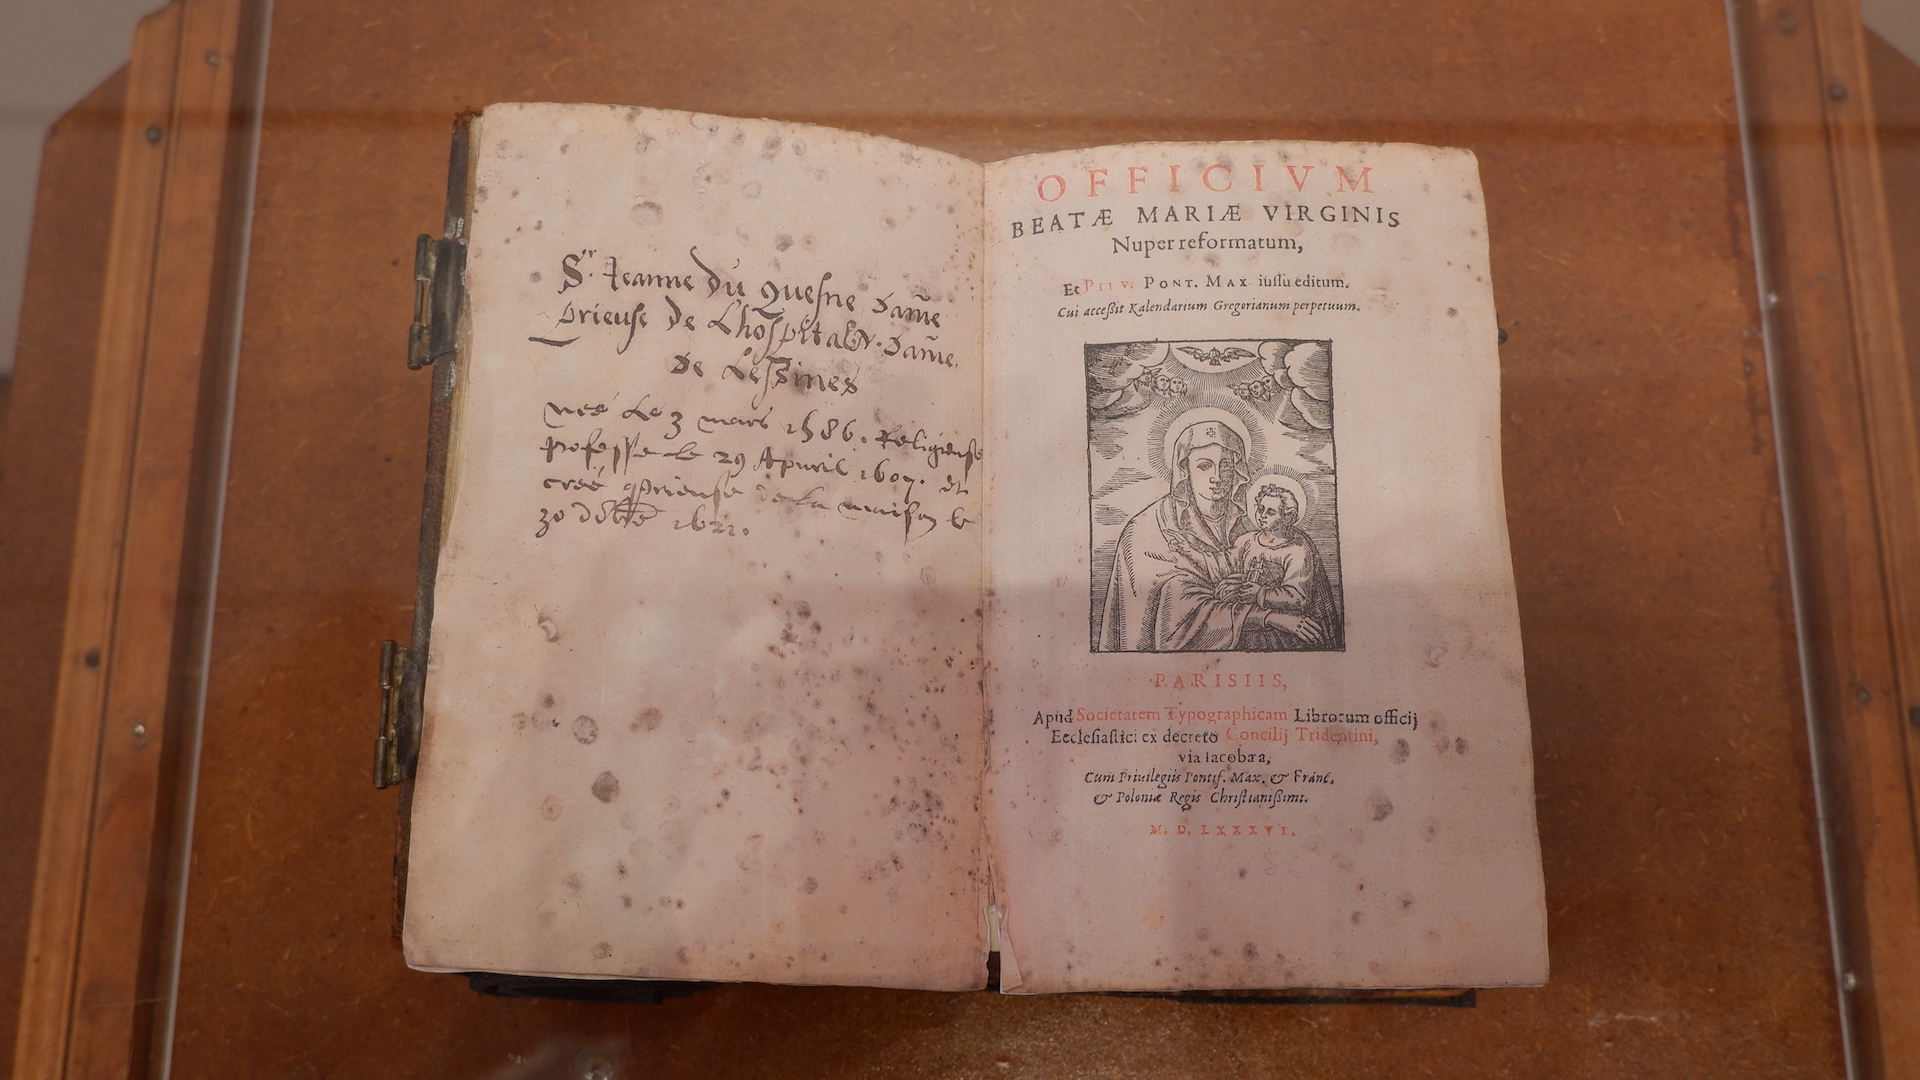 Sr. Jeanne du Quesne dame
prieuse de Lhospital nr. dame
de Lessines
neé Le 3 mars 1586. Religieuse
professe le 29 Apuril 1607. et
creé prieuse de la maison le
30 1621.
OFFICIVM
BEATÆ MARIÆ VIRGINIS
Nuper reformatum,
Et PII V. PONT. MAX. iussu editum.
Cui accessit Kalendarium Gregorianum perpetuum.
PARISIIS,
Apud Societatem Typographicam Librorum officij
Ecclesiastici ex decreto Concilij Tridentini,
via Iacobæa,
Cum Priuilegiis Pontif. Max. & Franc.
& Poloniæ Regis Christianissimi.
M. D. LXXXVI.